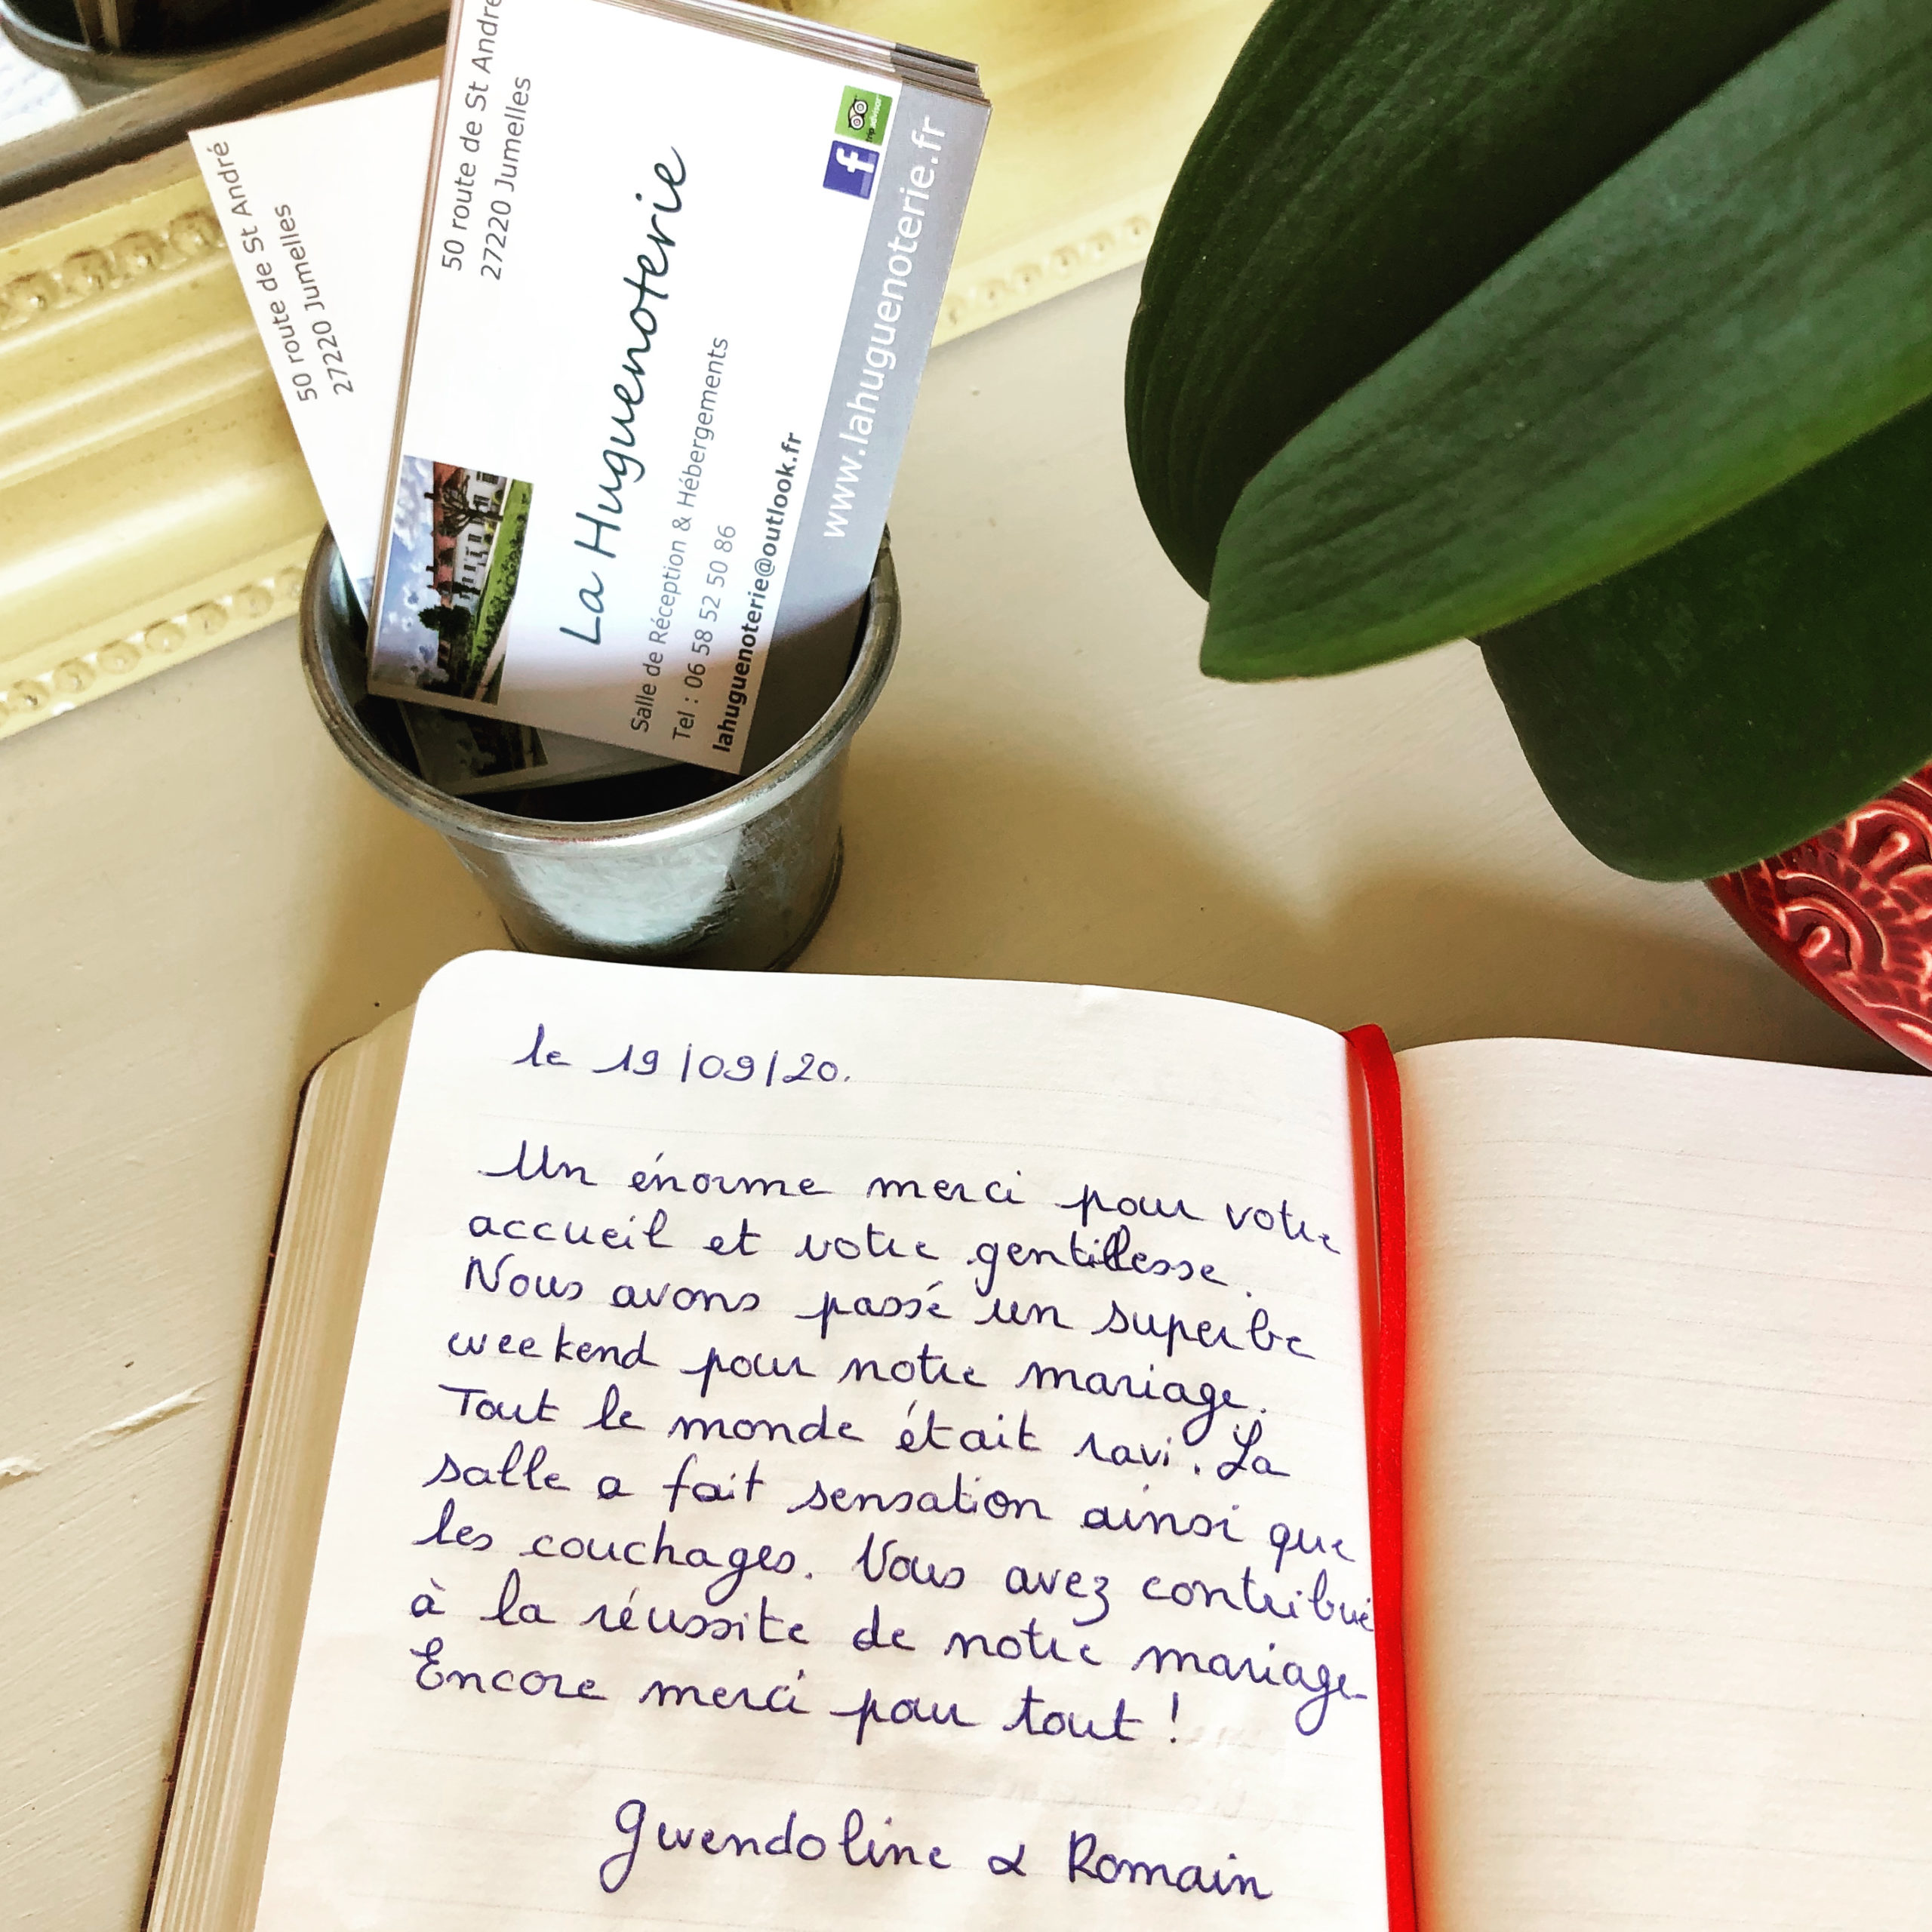 50 route de St André
27220 Jumelles
50 route de St André
27220 Jumelles
La Huguenoterie
Salle de Réception & Hébergements
Tel : 06 58 52 50 86
lahuguenoterie@outlook.fr
f
tripadvisor
www.lahuguenoterie.fr
le 19/09/20.
Un énorme merci pour votre
accueil et votre gentillesse.
Nous avons passé un superbe
weekend pour notre mariage.
Tout le monde était ravi. La
salle a fait sensation ainsi que
les couchages. Vous avez contribué
à la réussite de notre mariage.
Encore merci pour tout !
Gwendoline & Romain